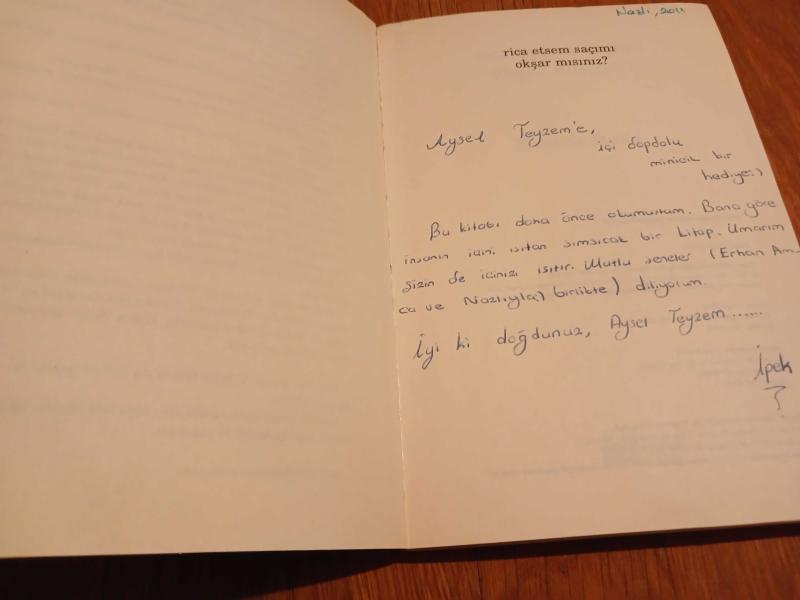 Nazlı, 2011
rica etsem saçımı
okşar mısınız?
Aysel Teyzem'e,
içi dopdolu
minicik bir
hediye:)
Bu kitabı daha önce okumuştum. Bana göre
insanın içini ısıtan sımsıcak bir kitap. Umarım
sizin de içinizi ısıtır. Mutlu seneler (Erhan Am-
ca ve Nazlıyla) birlikte) diliyorum.
İyi ki doğdunuz, Aysel Teyzem......
İpek